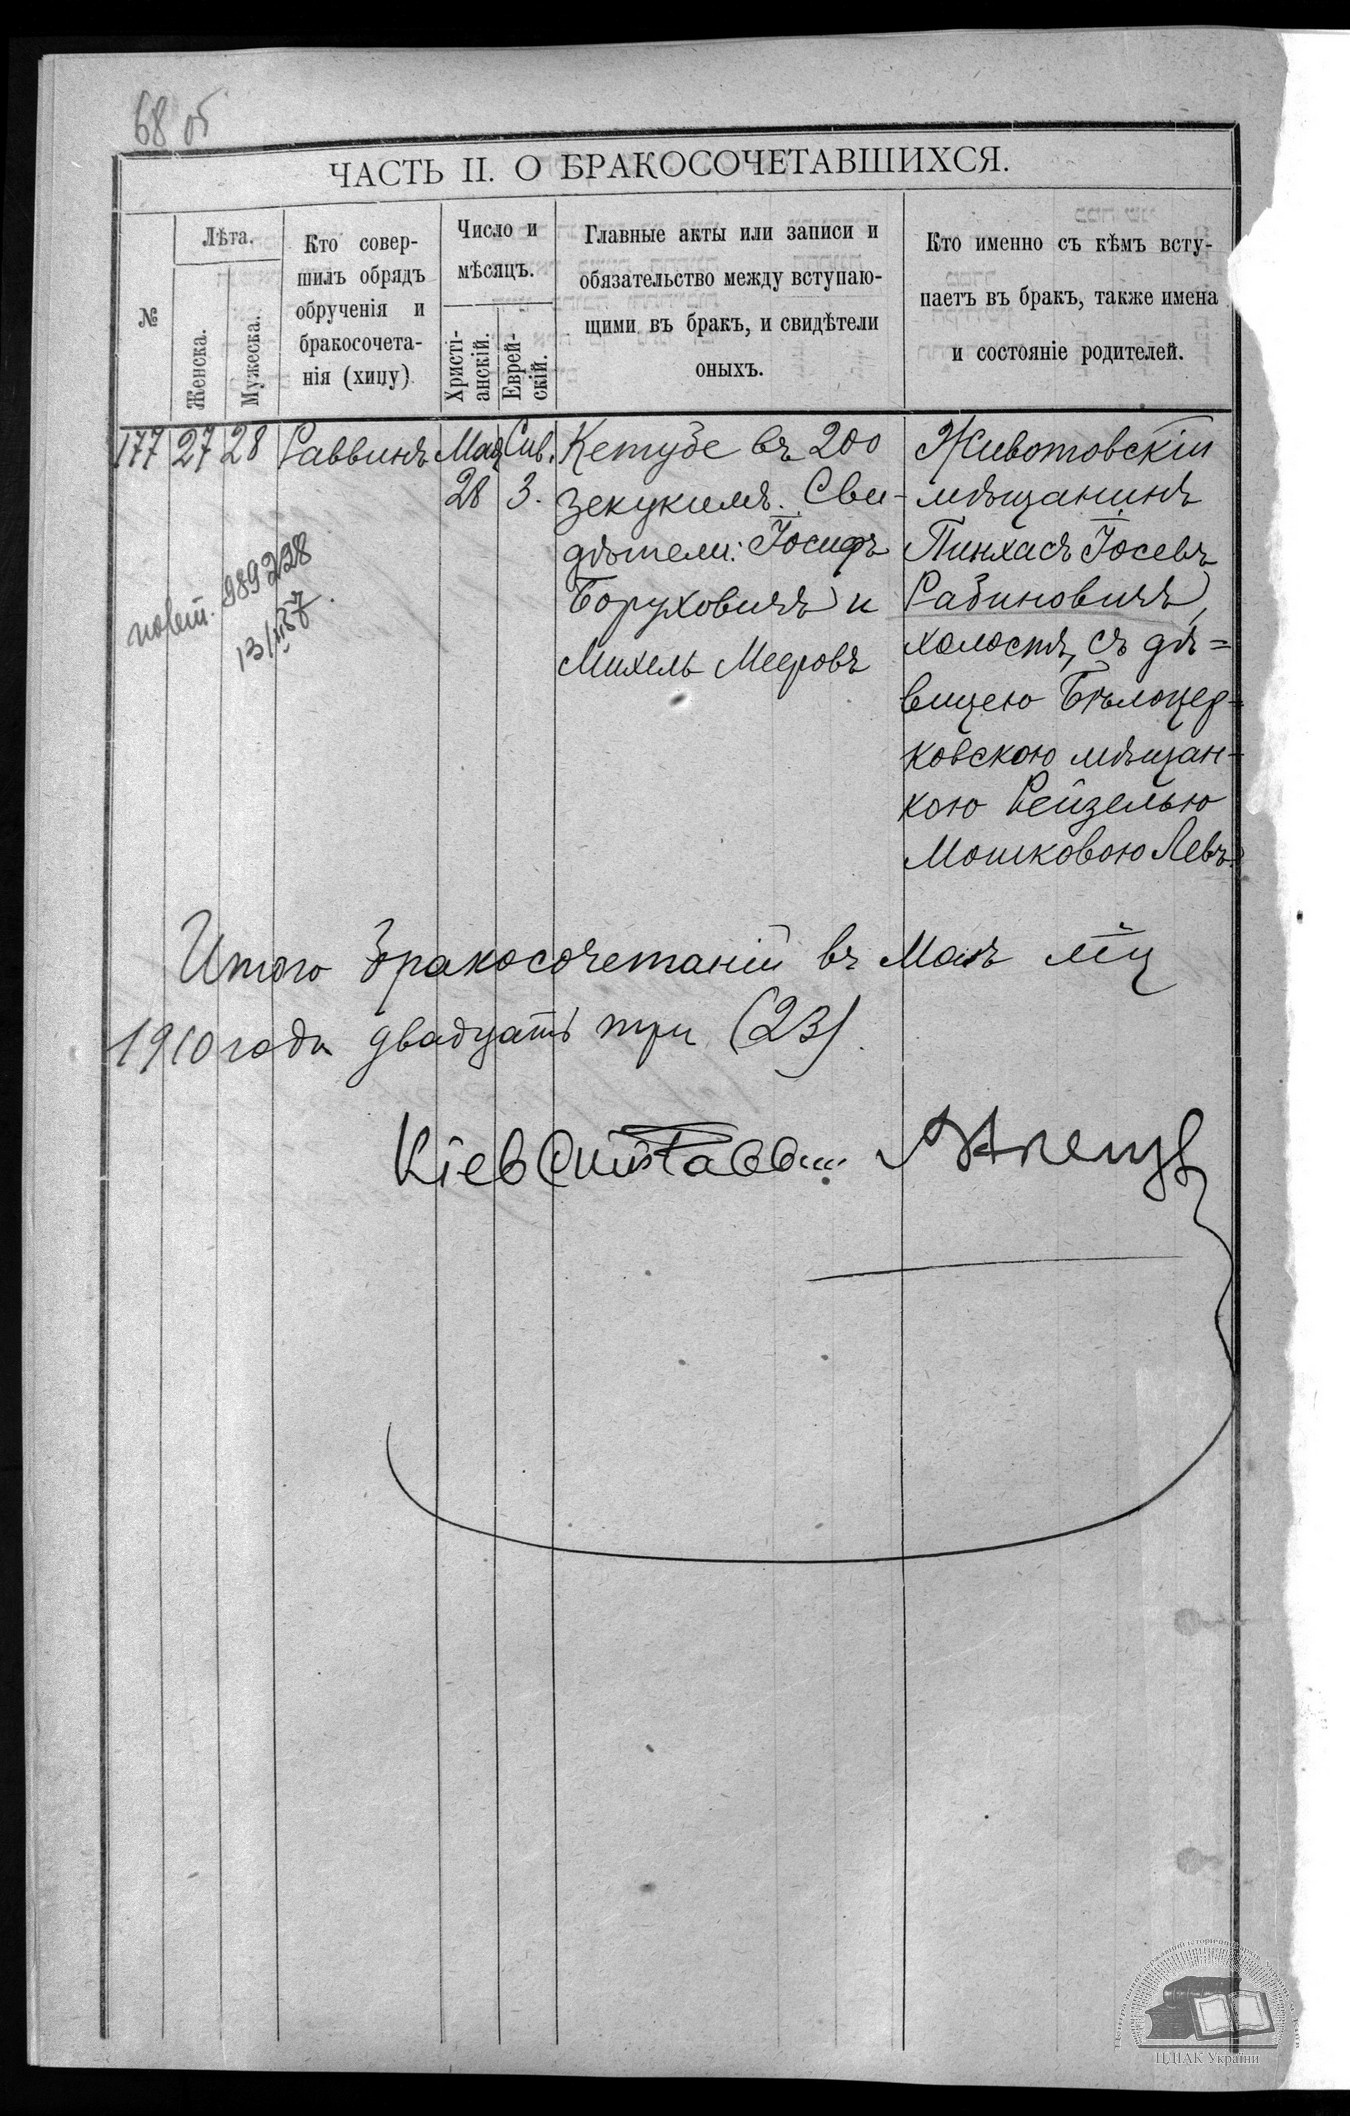 68 об
ЧАСТЬ II. О БРАКОСОЧЕТАВШИХСЯ.
№
Лѣта.
Женска.
Мужеска.
Кто совер-
шилъ обрядъ
обрученія и
бракосочета-
нія (хицу)
Число и
мѣсяцъ.
Христі-
анскій.
Еврей-
скій.
Главные акты или записи и
обязательство между вступаю-
щими въ бракъ, и свидѣтели
оныхъ.
Кто именно съ кѣмъ всту-
паетъ въ бракъ, также имена
и состояніе родителей.
177
27
28
Раввинъ
Мая
28
Сив.
3.
Кетубе въ 200
зекукимъ. Сви-
дѣтели: Іосифъ
Боруховичъ и
Михель Мееровъ
Животовскій
мѣщанинъ
Пинхасъ Іосевъ
Рабиновичъ,
холостъ, съ дѣ=
вицею Бѣлоцер-
ковскою мѣщан-
кою Рейзелью
Мошковою Левъ.
989228
Итого бракосочетаній въ Маѣ мѣц
1910 года двадцать три (23).
ЦДІАК України